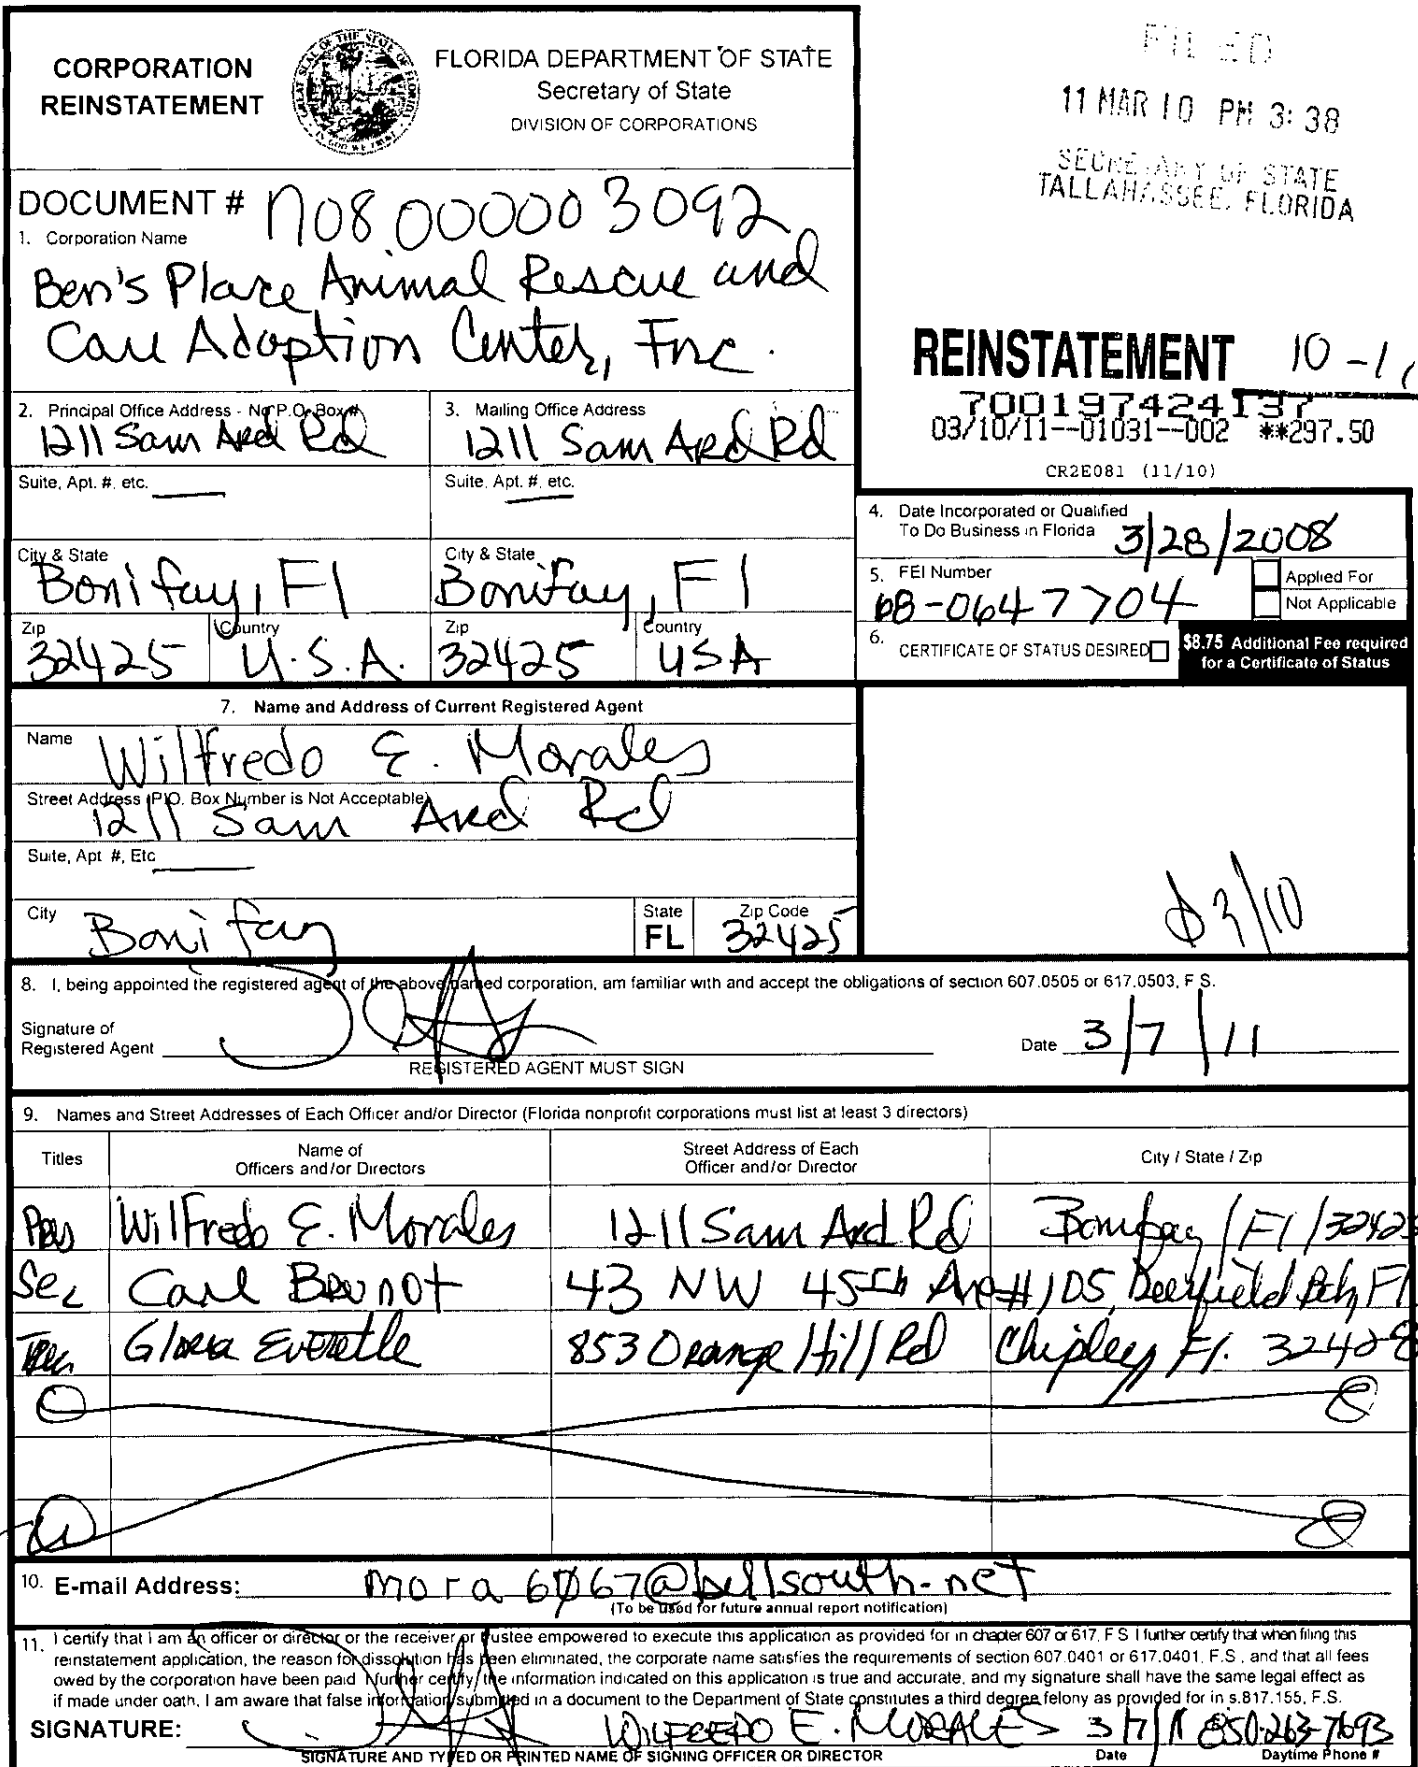 CORPORATION
REINSTATEMENT
FLORIDA DEPARTMENT OF STATE
Secretary of State
DIVISION OF CORPORATIONS
FILED
11 MAR 10 PM 3:38
SECRETARY OF STATE
TALLAHASSEE, FLORIDA
DOCUMENT # N08000003092
1. Corporation Name
Ben's Place Animal Rescue and
Care Adoption Center, Inc.
REINSTATEMENT 10-11
700197424137
03/10/11--01031--002 **297.50
CR2E081 (11/10)
2. Principal Office Address - No P.O. Box #
1211 Sam Ard Rd
3. Mailing Office Address
1211 Sam Ard Rd
Suite, Apt. #, etc.
Suite, Apt. #, etc.
4. Date Incorporated or Qualified
To Do Business in Florida 3/28/2008
City & State
Bonifay, Fl
City & State
Bonifay, Fl
5. FEI Number
68-0647704
Applied For
Not Applicable
Zip
32425
Country
U.S.A.
Zip
32425
Country
USA
6. CERTIFICATE OF STATUS DESIRED
$8.75 Additional Fee required
for a Certificate of Status
7. Name and Address of Current Registered Agent
Name Wilfredo E. Morales
Street Address (P.O. Box Number is Not Acceptable)
1211 Sam Ard Rd
Suite, Apt #, Etc
City Bonifay
State
FL
Zip Code
32425
3/10
8. I, being appointed the registered agent of the above named corporation, am familiar with and accept the obligations of section 607.0505 or 617.0503, F.S.
Signature of
Registered Agent
Date 3/7/11
REGISTERED AGENT MUST SIGN
9. Names and Street Addresses of Each Officer and/or Director (Florida nonprofit corporations must list at least 3 directors)
Titles
Name of
Officers and/or Directors
Street Address of Each
Officer and/or Director
City / State / Zip
Pres Wilfredo E. Morales 1211 Sam Ard Rd Bonifay / Fl / 32425
Sec Carl Brunot 43 NW 45th Ave #105, Deerfield Bch, Fl
Gloria Everette 853 Orange Hill Rd Chipley, Fl. 32428
10. E-mail Address: mora6067@bellsouth.net
(To be used for future annual report notification)
11. I certify that I am an officer or director or the receiver or trustee empowered to execute this application as provided for in chapter 607 or 617, F S I further certify that when filing this
reinstatement application, the reason for dissolution has been eliminated, the corporate name satisfies the requirements of section 607.0401 or 617.0401, F.S., and that all fees
owed by the corporation have been paid I further certify, the information indicated on this application is true and accurate, and my signature shall have the same legal effect as
if made under oath. I am aware that false information submitted in a document to the Department of State constitutes a third degree felony as provided for in s.817.155, F.S.
SIGNATURE: WILFREDO E. MORALES 3/7/11 850-263-7693
SIGNATURE AND TYPED OR PRINTED NAME OF SIGNING OFFICER OR DIRECTOR
Date
Daytime Phone #